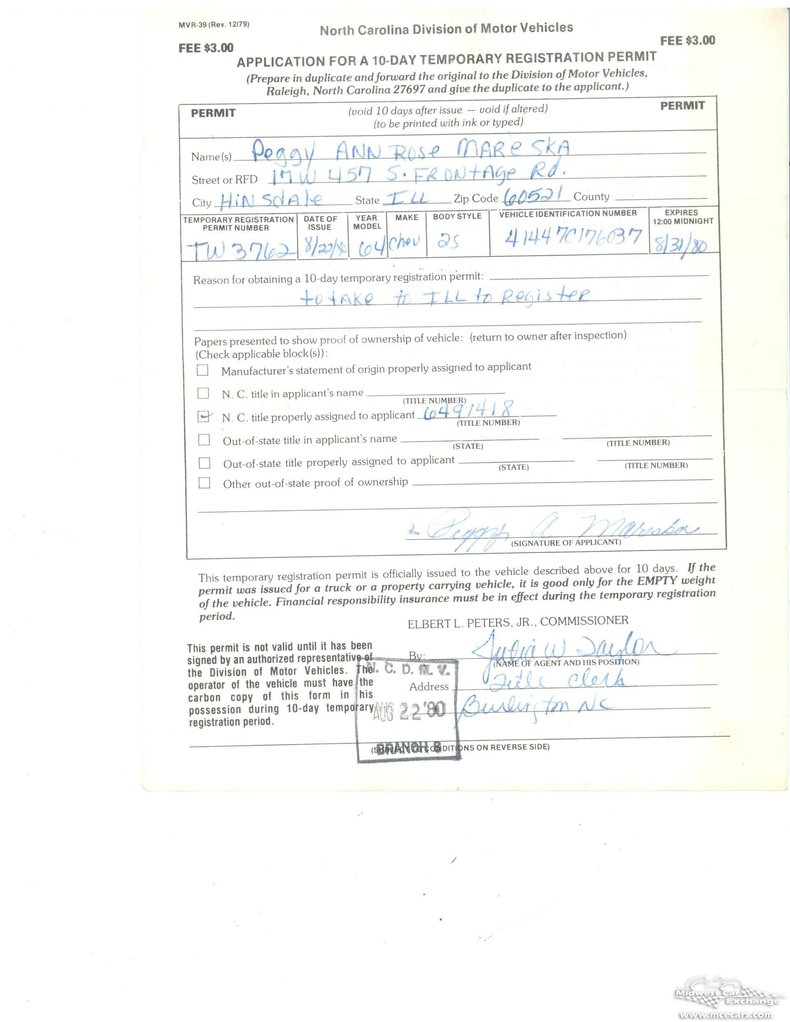 MVR-39 (Rev. 12/79)
North Carolina Division of Motor Vehicles
FEE $3.00 FEE $3.00
APPLICATION FOR A 10-DAY TEMPORARY REGISTRATION PERMIT
(Prepare in duplicate and forward the original to the Division of Motor Vehicles,
Raleigh, North Carolina 27697 and give the duplicate to the applicant.)
PERMIT (void 10 days after issue — void if altered) PERMIT
(to be printed with ink or typed)
Name(s) Peggy ANN Rose MARESKA
Street or RFD 17W 457 S. FRONTAge Rd.
City HiNSdAle State ILL Zip Code 60521 County
TEMPORARY REGISTRATION PERMIT NUMBER DATE OF ISSUE YEAR MODEL MAKE BODY STYLE VEHICLE IDENTIFICATION NUMBER EXPIRES 12:00 MIDNIGHT
TW 3762 8/22/80 64 Chev 2S 41447C176037 8/31/80
Reason for obtaining a 10-day temporary registration permit:
to tAke to ILL to Register
Papers presented to show proof of ownership of vehicle: (return to owner after inspection)
(Check applicable block(s)):
Manufacturer's statement of origin properly assigned to applicant
N. C. title in applicant's name
(TITLE NUMBER)
N. C. title properly assigned to applicant 6491418
(TITLE NUMBER)
Out-of-state title in applicant's name
(STATE) (TITLE NUMBER)
Out-of-state title properly assigned to applicant
(STATE) (TITLE NUMBER)
Other out-of-state proof of ownership
Peggy A Mareska
(SIGNATURE OF APPLICANT)
This temporary registration permit is officially issued to the vehicle described above for 10 days. If the
permit was issued for a truck or a property carrying vehicle, it is good only for the EMPTY weight
of the vehicle. Financial responsibility insurance must be in effect during the temporary registration
period.
ELBERT L. PETERS, JR., COMMISSIONER
This permit is not valid until it has been
signed by an authorized representative of
the Division of Motor Vehicles. The
operator of the vehicle must have the
carbon copy of this form in his
possession during 10-day temporary
registration period.
By: Julia W Taylor
(NAME OF AGENT AND HIS POSITION)
Title Clerk
Address Burlington NC
N. C. D. M. V.
AUG 22 '80
BRANCH
(SUBJECT TO CONDITIONS ON REVERSE SIDE)
Midwest Car Exchange
www.mcecars.com